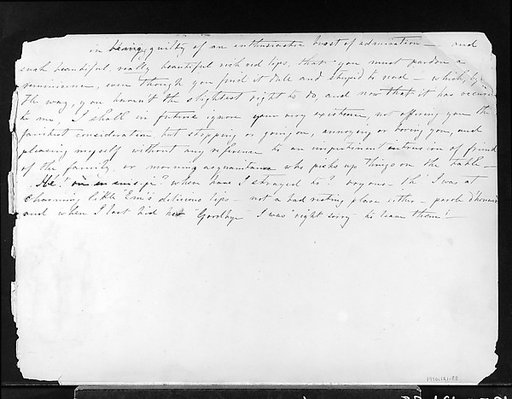 in being guilty of an enthusiastic burst of admiration — and
such beautiful, really beautiful rich red lips, that you must pardon a
even though you find it dull and stupid to read — which, by
the way, you haven't the slightest right to do, and now that it has occurred
to me, I shall in future ignore your very existence, not offering you the
faintest consideration but stopping or going on, annoying or boring you, and
pleasing myself without any reference to an impertinent intrusion of friend
of the family or morning acquaintance who picks up things on the table —
when have I strayed to? voyons — Oh! I was at
charming little Em's delicious lips — not a bad resting place either — parole d'honneur
and when I last bid her "Goodbye" I was right sorry to leave them!